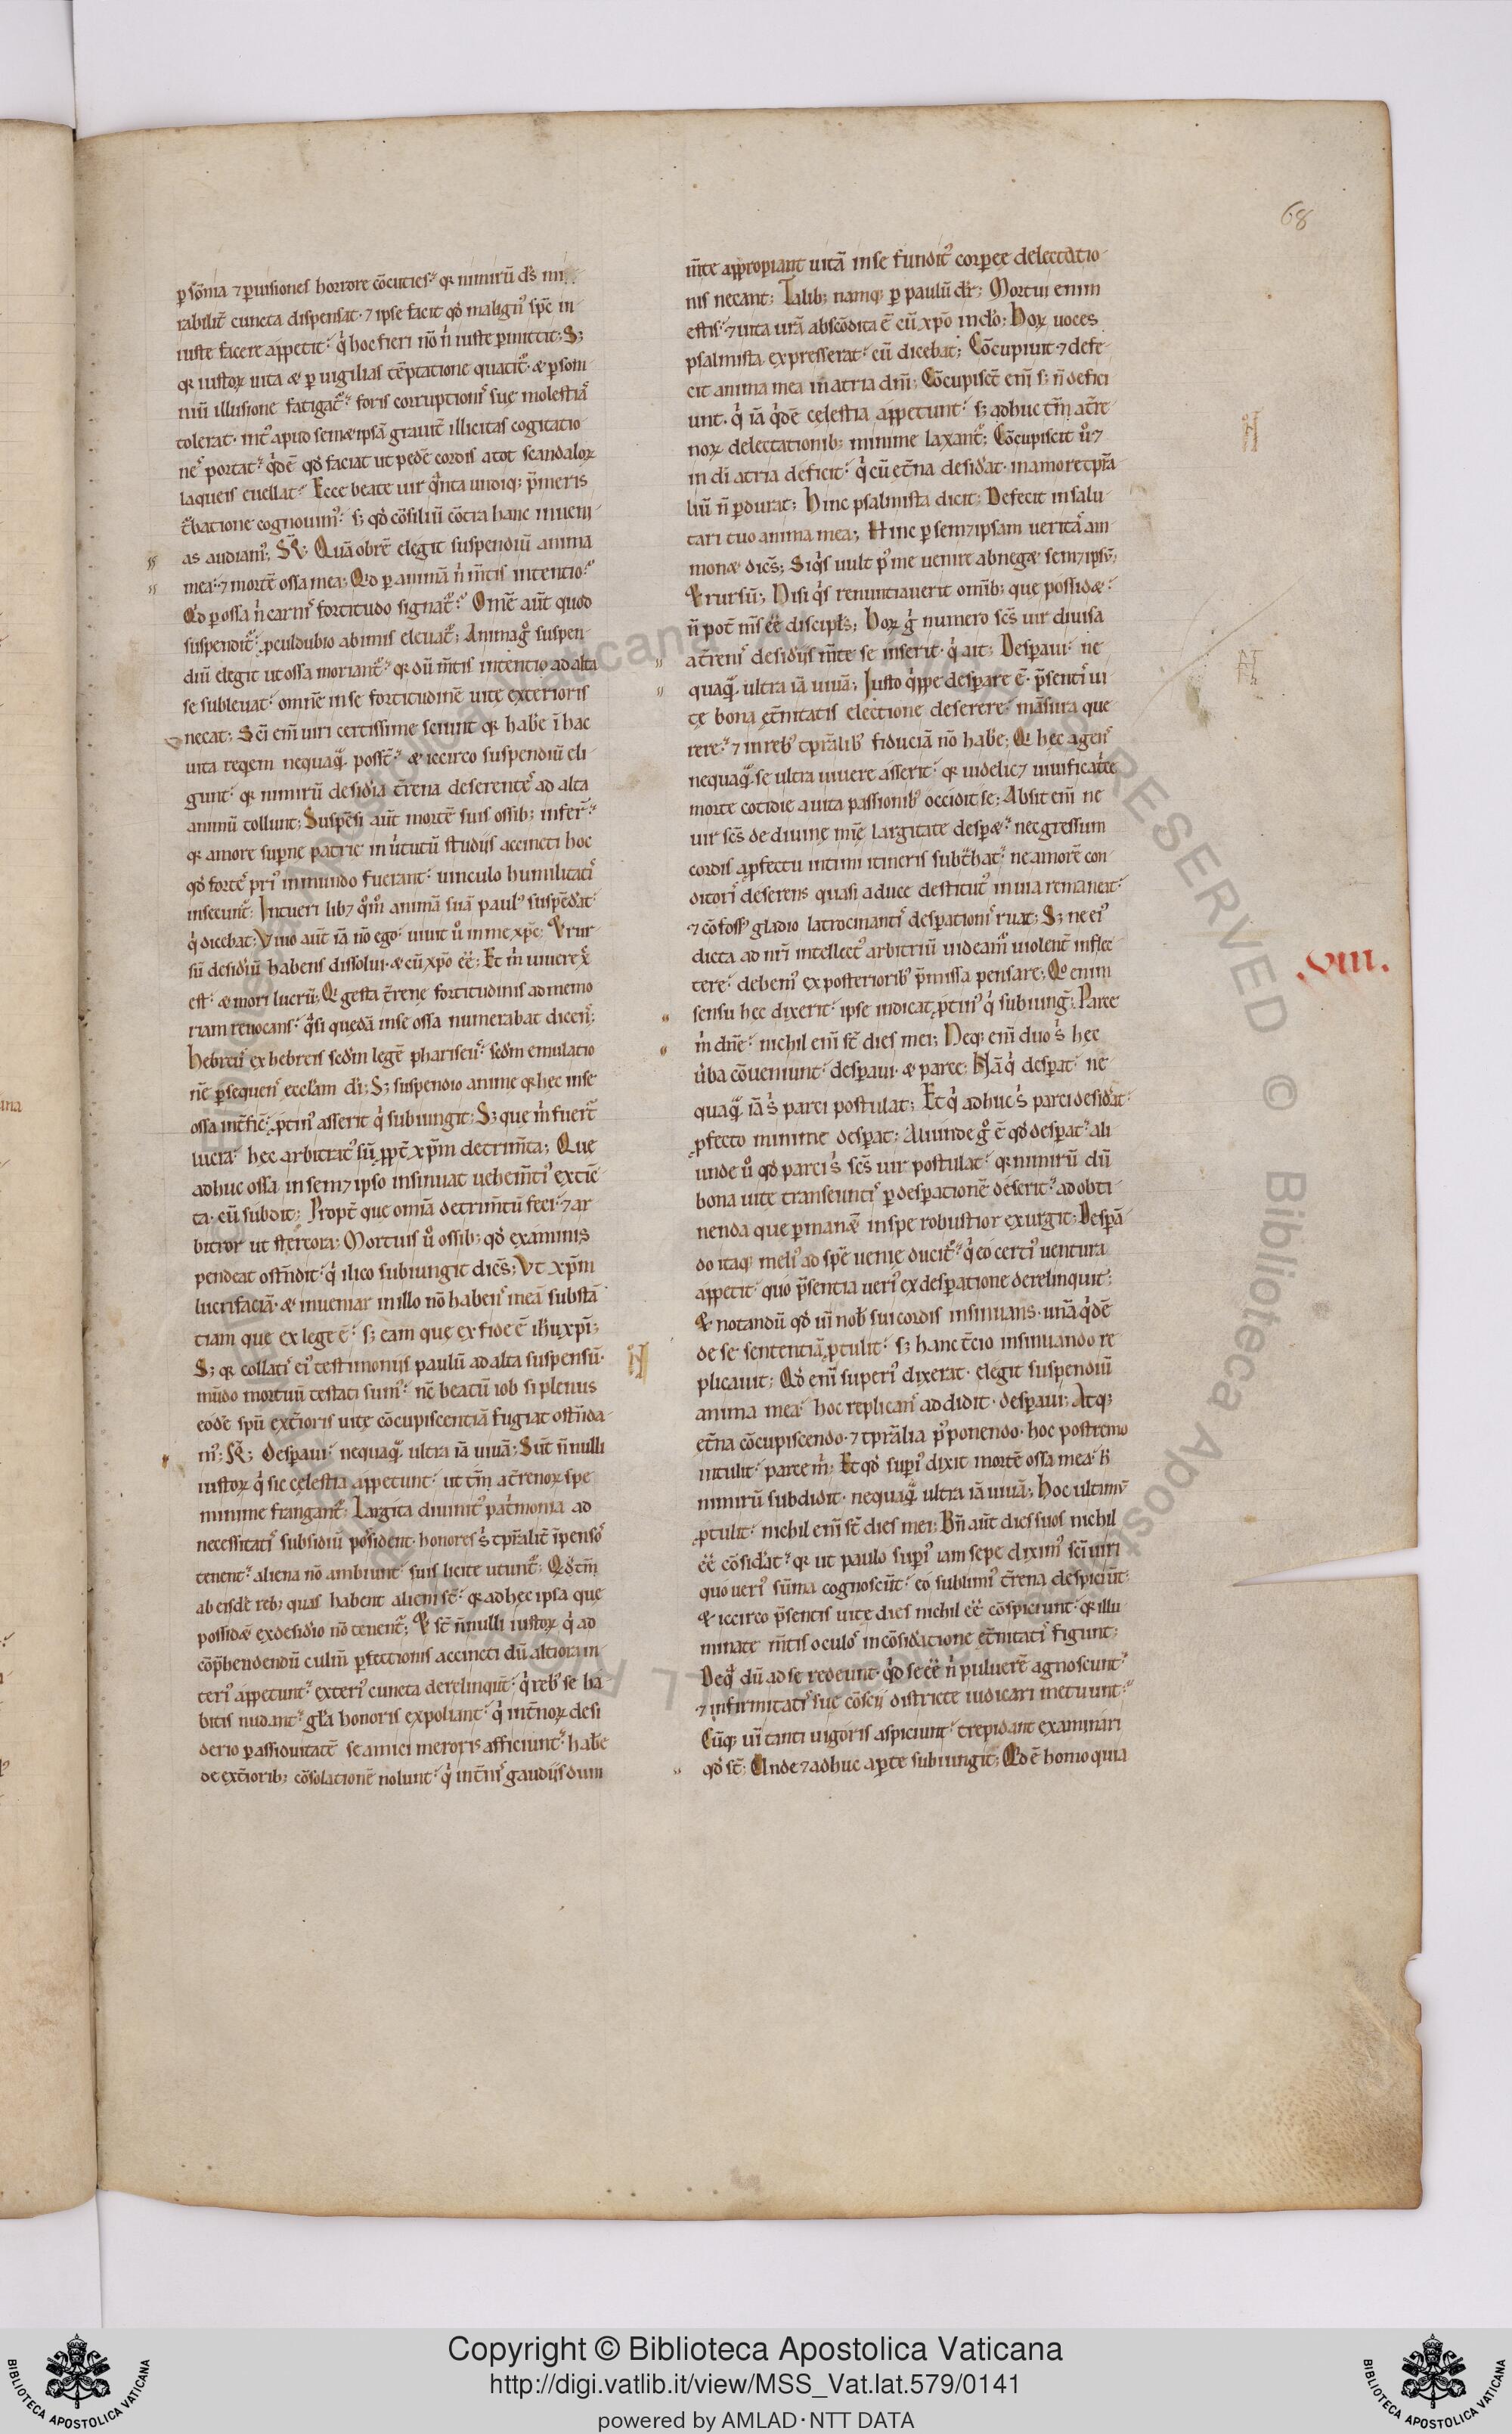 68
ꝑ sōnia ⁊ ꝑ uisiones horrore cōcuties? qꝛ nimirū dꝰs mi
rabilit̄ cuncta dispensat· ⁊ ipse facit qđ malignꝰ spc̄ in
iuste facere appetit· q̇ hoc fieri nō ṅ iuste ꝑmittit; S;
qꝛ iustoꝝ uita & ꝑ uigilias tēptatione quatit̄· & ꝑ som
niū illusione fatigat̄? foris corruptionis suę molestiā
tolerat· int̄ apud sem&ipsā grauit̄ illicitas cogitatio
nes portat? q̇dē qđ faciat ut pedē cordis a tot scandaloꝝ
laqueis euellat? Ecce beate uir q̇nta undiqꝫ ꝑmeris
t̄batione cognouimꝰ? sꝫ qđ cōsiliū cōtra hanc inueni
as audiamꝰ; Quā obrē elegit suspendiū anima
mea· ⁊ mortē ossa mea; Qđ ꝑ animā ṅ m̄tis intentio?
Qđ ꝑ ossa ṅ carnis fortitudo signat̄? Om̄e aūt quod
suspendit̄· ꝓculdubio ab imis eleuat̄; Anima gͦ suspen
diū elegit ut ossa moriant̄? qꝛ dū m̄tis intentio ad alta
se subleuat· omnē in se fortitudinē uitę exterioris
necat; Sc̄i em̄ uiri certissime sciunt qꝛ habe͛ ī hac
uita reqem nequaq̄ꝫ poss̄t? & iccirco suspendiū eli
gunt· qꝛ nimirū desidīa t̄rena deserentes ad alta
animū tollunt; Suspēsi aūt mortē suis ossibꝫ infer̄t?
qꝛ amore supne patrie in u̇tutū studiis accincti hoc
qđ fortes priꝰ in mundo fuerant· uinculo humilitatis
insecunt̄; Intueri libꝫ q̄m̄ animā suā paulꝰ suspēdat·
q̇ dicebat; Viuo aūt iā nō ego· uiuit uͦ in me xp̄c; & rur
sū desidiū habens dissolui· & cū xp̄o ee͛; Et m̄ uiuere x̄
est· & mori lucrū; Qi gesta t̄rene fortitudinis ad memo
riam reuocans· q̄si quedā in se ossa numerabat dicens;
hebreus ex hebreis sedm̄ legē phariseꝰ? sedm̄ emulatio
nē ꝑsequens ecclam di; S; suspendio anime qꝛ hec in se
ossa int̄fic̄· ꝓtinꝰ asserit q̇ subiungit; S; que m̄ fuer̄t
lucra· hec arbitratꝰ sū ꝓpt̄ xp̄m detrim̄ta; Que
adhuc ossa in sem&ipso insinuat uehem̄ti extīc
ta· cū subdit; Propt̄ que omīa detrim̄tū feci· ⁊ ar
bitror ut stercora; Mortuis uͦ ossibꝫ qđ exanimis
pendeat ost̄ndit· q̇ ilico subiungit dic̄s; Vt xp̄m
lucrifaciā· & inueniar in illo nō habens meā iustī
tiam que ex lege ē· sꝫ eam que ex fide ē ihu xp̄i;
S; qꝛ collatis eiꝰ testimoniis paulū ad alta suspensū·
mūdo mortuū testati sumꝰ· nē beatū iob si plenus
eodē spū ext̄ioris uitę cōcupiscentiā fugiat ost̄nda
mꝰ; Desperaui· nequaq̄ꝫ ultra iā uiuā; Sūt n̄nulli
iustoꝝ q̇ sic cęlestia appetunt· ut tm̄ a t̄renoꝝ spe
minime frangant̄; Largita diuinitꝰ pat̄monia ad
necessitatis subsidiū possident· honores s̄ tp̄ralit̄ īpensos
tenent? aliena nō ambiunt· suis licite utunt̄; Qđ tm̄
ab eisdē rebꝫ quas habent alieni st̄· qꝛ ad hęc ipsa que
possident ex desidīo nō tenent̄; & st̄ n̄nulli iustoꝝ q̇ ad
cōp̄hendendū culm̄ ꝑfectionis accincti dū altiora in
teriꝰ appetunt? exteriꝰ cuncta derelinqūt· q̇ rebꝰ se ha
bitis nudant? gl̄a honoris expoliant· q̇ int̄noꝝ desi
derio ꝑ assiduitatē se amici meroris afficiunt? habe͛
de ext̄ioribꝫ cōsolationē nolunt· q̇ int̄nis gaudiis dum
m̄te appropiant uitā in se funditꝰ corpee delectatio
nis necant; Talibꝫ namqꝫ ꝑ paulū dr̄; Mortui enim
estis· ⁊ uita urā abscōdita ē cū xp̄o in do; hoꝝ uoces
psalmista expresserat· cū dicebat; Cōcupiuit ⁊ defe
cit anima mea in atria dn̄i; Cōcupisct̄ em̄ sꝫ n̄ defici
unt· q̇ iā q̇dē cęlestia appetunt· sꝫ adhuc tm̄ a t̄re
noꝝ delectationibꝫ minime laxant̄; Cōcupiscit uͦ ⁊
in di atria deficit· q̇ cū et̄na desidat· in amore tp̄ra
liū n̄ ꝑdurat; Hinc psalmista dicit; Defecit in salu
tari tuo anima mea; Hinc ꝑ sem&ipsam ueritas am
monet dic̄s; Siq̇s uult p̄ me uenire abneget sem&ipsū;
& rursū; Nisi q̇s renuntiauerit omībꝫ que possidet·
n̄ pot̄ m̄s ee͛ discipl̄s; Hoꝝ gͦ numero sc̄s uir diuisa
a t̄renis desidiis m̄te se inserit· q̇ ait; Despaui· ne
quaq̄ꝫ ultra iā uiuā; Iusto q̇ppe despare ē· p̄sentis ui
tę bona et̄nitatis electione deserere· māsura que
rere? ⁊ in rebꝰ tp̄ralibꝰ fiduciā nō habe͛; Qi hec agens
nequaq̄ꝫ se ultra uiuere asserit· qꝛ uidelicꝫ uiuificat̄e
morte cotidie a uita passionibꝰ occidit se; Absit em̄ ne
uir sc̄s de diuinę mīę largitate despet· ne gressum
cordis a ꝑfectu intimi itineris subt̄hat· ne amorē con
ditoris deserens quasi a duce destitutꝰ in uia remaneat·
⁊ cōfossꝰ gladio latrocinantis desperationis ruat; S; ne eiꝰ
dicta ad nr̄i intellectꝰ arbitriū uideamꝰ uiolent̄ inflec
tere· debemꝰ ex posterioribꝰ p̄missa pensare; Qo enim
sensu hec dixerit· ipse indicat ꝓtinꝰ q̇ subiunḡ; Parce
m̄ dn̄e· nichil em̄ st̄ dies mei; Neqꝫ em̄ duo s̄ hec
u̇ba cōueniunt· despaui· & parce; Nā q̇ despat· ne
quaq̄ꝫ iā s̄ parci postulat; Et q̇ adhuc s̄ parci desidat·
ꝓfecto minime despat; Aliunde gͦ ē qđ despat? ali
unde uͦ qđ parci s̄ sc̄s uir postulat· qꝛ nimirū dū
bona uitę transeuntis ꝑ desperationē deserit? ad obti
nenda que ꝑmanent in spe robustior exurgit; Despā
do itaqꝫ meliꝰ ad spē uenię ducit̄? q̇ eo certiꝰ uentura
appetit· quo p̄sentia ueriꝰ ex desperatione derelinquit;
& notandū qđ uī nobꝫ sui cordis insinuans· unā q̇dē
de se sententiā ꝓtulit· sꝫ hanc t̄cio insinuando re
plicauit; Qđ em̄ superiꝰ dixerat· elegit suspendiū
anima mea· hoc replicans addidit· despaui; Atqꝫ
et̄na cōcupiscendo· ⁊ tp̄ralia p̄ponendo· hoc postremo
intulit· parce m̄; Et qđ supiꝰ dixit mortē ossa mea· h̄
nimirū subdidit· nequaq̄ꝫ ultra iā uiuā; Hoc ultimū
ꝓtulit· nichil em̄ st̄ dies mei; Bn̄ aūt dies suos nichil
ee͛ cōsidat? qꝛ ut paulo supiꝰ iam sepe diximꝰ sc̄i uiri
quo ueriꝰ sūma cognoscūt· eo sublimiꝰ t̄rena despiciūt·
& iccirco p̄sentis uitę dies nichil ee͛ cōspiciunt· qꝛ illu
minate m̄tis oculos in cōsidatione et̄nitatis figunt;
Deq̄ dū ad se redeunt· q̇d se ee͛ ṅ puluerē agnoscunt?
⁊ infirmitatis suę cōscii districte iudicari metuunt?
Cūqꝫ uī tanti uigoris aspiciunt· trepidant examinari
qđ st̄; Unde ⁊ adhuc apte subiungit; Qđ ē homo quia
XVIII.
Copyright © Biblioteca Apostolica Vaticana
http://digi.vatlib.it/view/MSS_Vat.lat.579/0141
powered by AMLAD·NTT DATA
BIBLIOTECA APOSTOLICA VATICANA
BIBLIOTECA APOSTOLICA VATICANA